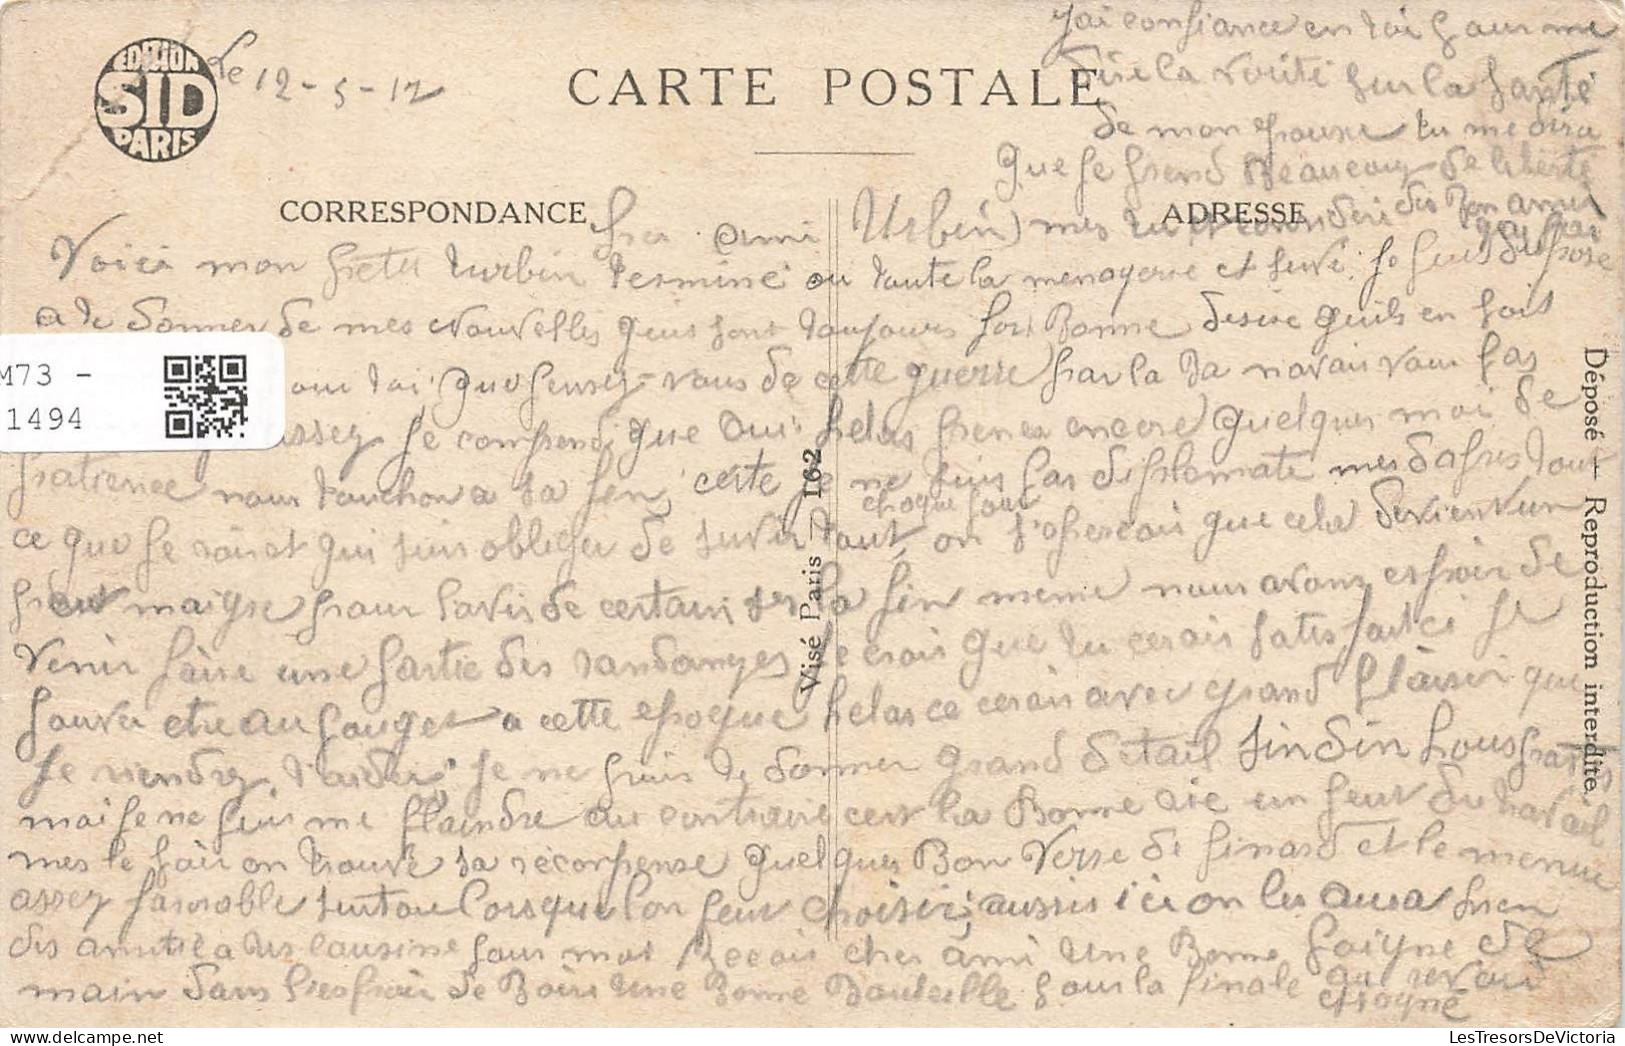 EDITION
SID
PARIS
Le 12-5-17
CARTE POSTALE
CORRESPONDANCE
ADRESSE
J'ai confiance en toi pour me
dire la verité sur la santé
de mon epouse tu me dira
que je prend Beaucoup de liberté
mes tu des Bon amis
Cher ami Urbin
Voici mon petit turbin terminé ou toute la menagerie et servi je
a te donner de mes nouvelles qui sont toujours fort Bonne desire quils en soit
pour toi que pensez-vous de cette guerre par la Ba navais vous pas
assez je comprend que oui helas prenez encore quelques moi de
patience nous touchon a sa fin, certe je ne suis pas diplomate mes dapres tout
ce que je vois et qui suis obliger de suivre tout, on s'apercois que cela devient un
chaque jour
peut maigre pour lavis de certain sur la fin meme nous avons espoir de
venir faire une partie des vandanges je crois que tu cerais satisfait ci je
pouvai etre au a cette epoque helas ce cerais avec grand plaisir que
je viendrez t'aider, je ne puis te donner grand detail
mais je ne puis me plaindre au contraire cest la Bonne vie un peut du travail
mes le soir on trouve sa récompense quelques Bon verre de pinard et le menue
assez favorable surtou lorsque lon peut choisir, aussis ici on les aura bien
des amitié a tes cousine pour moi Recois cher ami une Bonne poigne de
main dans l'espoir de Boire une Bonne Bouteille pour la finale au revoir
M73 -
1494
Visé Paris - 162
Déposé - Reproduction interdite.
LesTresorsDeVictoria.com